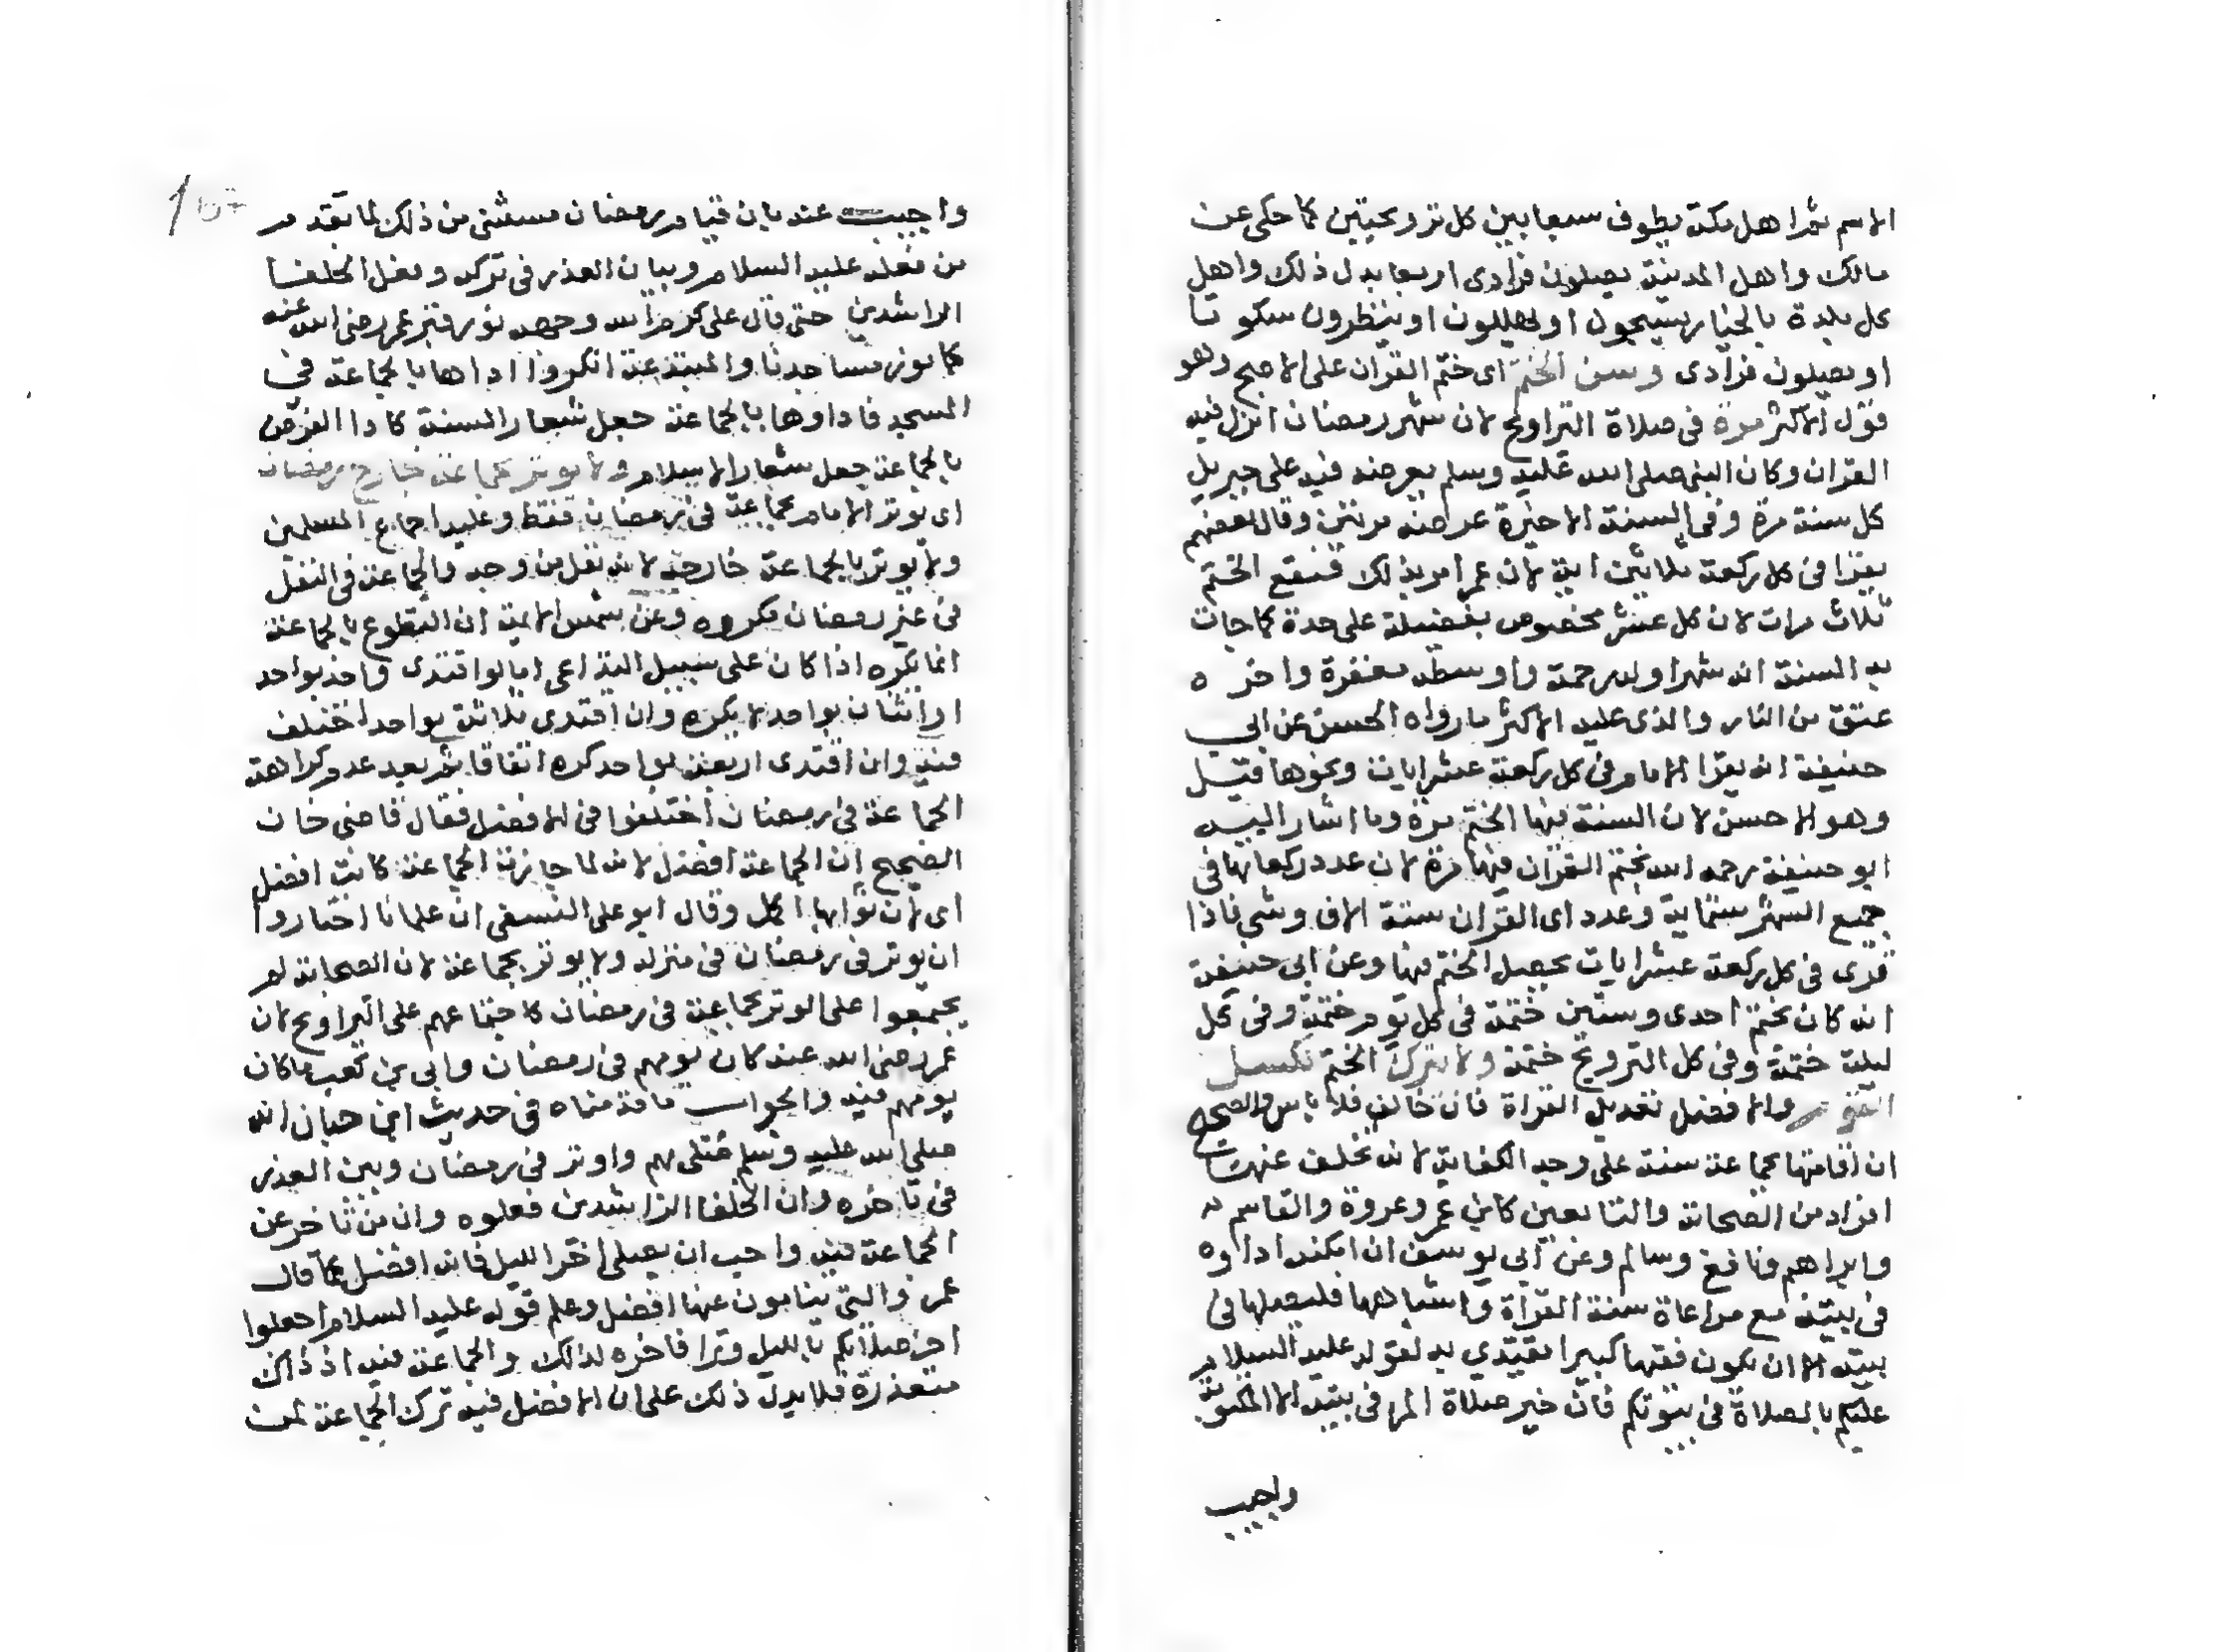 الاسم ثم اهل مكة يطوف سبعا بين كل ترويحتين كما حكى عن
مالك واهل المدينة يصلون فرادى اربعا بدل ذلك واهل
كل بلدة بالخيار يسبحون او يهللون او ينتظرون سكوتا
او يصلون فرادى وسن الختم اى ختم القران على الاصح وهو
قول الاكثر مرة فى صلاة التراويح لان شهر رمضان انزل فيه
القران وكان النبى صلى الله عليه وسلم يعرضه فيه على جبريل
كل سنة مرة وفى السنة الاخيرة عرضه مرتين وقال بعضهم
يقرا فى كل ركعة ثلاثين اية لان عمر امر بذلك فيقع الختم
ثلاث مرات لان كل عشر مخصوص بفضيلة على حدة كما جات
به السنة انه شهر اوله رحمة واوسطه مغفرة واخره
عتق من النار والذى عليه الاكثر ما رواه الحسن عن ابي
حنيفة انه يقرا الامام فى كل ركعة عشر ايات ونحوها قيل
وهو الاحسن لان السنة فيها الختم مرة وما اشار اليه
ابو حنيفة رحمه الله بختم القران فيها مرة لان عدد ركعاتها فى
جميع الشهر ستماية وعدد اى القران ستة الاف وشى فاذا
قرى فى كل ركعة عشر ايات يحصل الختم فيها وعن ابى حنيفة
انه كان يختم احدى وستين ختمة فى كل يوم ختمة وفى كل
ليلة ختمة وفى كل التروايح ختمة ولا يترك الختم لكسل
القوم والافضل تعديل القراة فان خالف فلا باس والصحيح
ان اقامتها بجماعة سنة على وجه الكفاية لانه تخلف عنها
افراد من الصحابة والتابعين كابن عمر وعروة والقاسم
وابراهيم ونافع وسالم وعن ابى يوسف ان امكنه اداوه
فى بيته مع مراعاة سنة القراة واشباهها فليصلها فى
بيته الا ان يكون فقيها كبيرا يقتدي به لقوله عليه السلام
عليكم بالصلاة فى بيوتكم فان خير صلاة المر فى بيته الا المكتوبة
واجيب
واجيب عنه بان قيام رمضان مستثنى من ذلك لما تقدم
من فعله عليه السلام وبيان العذر فى تركه وفعل الخلفا
الراشدين حتى قال على كرم الله وجهه نور قبر عمر رضى الله عنه
كما نور مساجدنا والمبتدعة انكروا اداها بالجماعة في
المسجد فاداوها بالجماعة جعل شعار السنة كادا الفرض
بالجماعة جعل شعار الاسلام ولا يوتر بجماعة خارج رمضان
اى يوتر الامام بجماعة فى رمضان فقط وعليه اجماع المسلمين
ولا يوتر بالجماعة خارجه لانه نفل من وجه والجماعة فى النفل
فى غير رمضان مكروه وعن شمس الايمة ان التطوع بالجماعة
انما يكره اذا كان على سبيل التداعى اما لو اقتدى واحد بواحد
او اثنان بواحد لا يكره وان اقتدى ثلاثة بواحد اختلف
فيه وان اقتدى اربعة بواحد كره اتفاقا ثم بعد عدم كراهة
الجماعة فى رمضان اختلفوا فى الافضل فقال قاضى خان
الصحيح ان الجماعة افضل لانه لما جازت الجماعة كانت افضل
اى لان ثوابها اكمل وقال ابو على النسفى ان علمانا اختاروا
ان يوتر فى رمضان فى منزله ولا يوتر بجماعة لان الصحابة لم
يجتمعوا على الوتر بجماعة فى رمضان كاجتماعهم على التراويح لان
عمر رضى الله عنه كان يومهم فى رمضان وابى بن كعب ماكان
يومهم فيه والجواب ما قدمناه فى حديث ابن حبان انه
صلى الله عليه وسلم صلى بهم واوتر فى رمضان وبين العذر
فى تاخره وان الخلفا الراشدين فعلوه وان من تاخر عن
الجماعة فيه واحب ان يصلى اخر الليل فانه افضل كما قال
عمر والتى ينامون عنها افضل وعلم قوله عليه السلام اجعلوا
اخر صلاتكم بالليل وترا فاخره لذلك والجماعة فيه اذ ذاك
متعذرة فلا يدل ذلك على ان الافضل فيه ترك الجماعة لمن